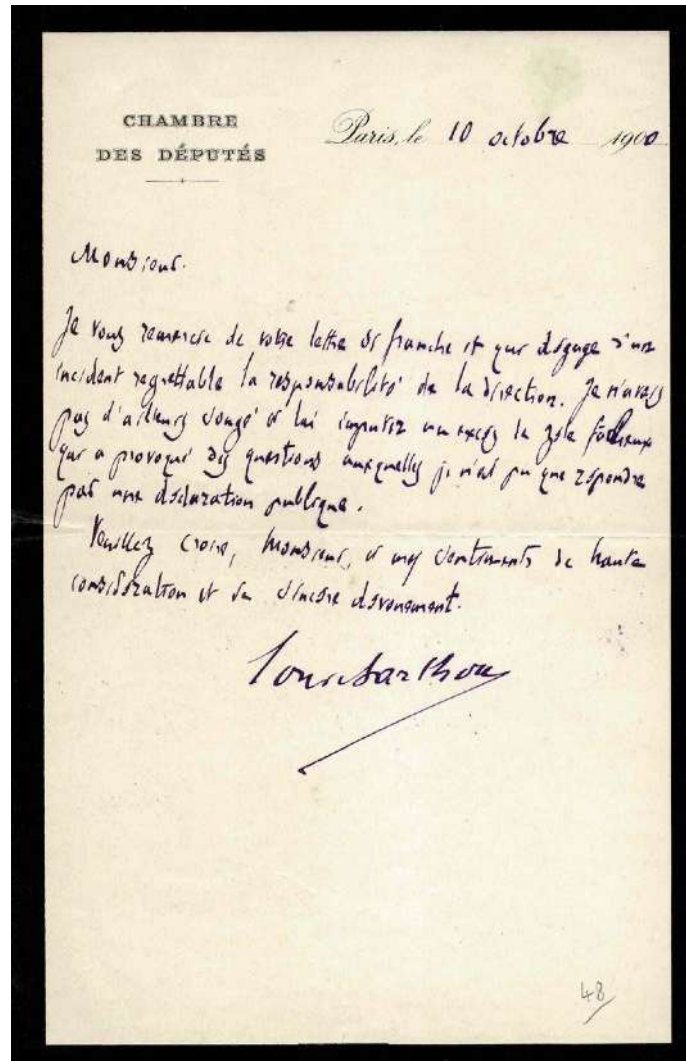 CHAMBRE
DES DÉPUTÉS
Paris, le 10 octobre 1900
Monsieur.
Je vous remercie de votre lettre si franche et qui dégage d'un
incident regrettable la responsabilité de la direction. Je n'avais
pas d'ailleurs songé à lui imputer un excès de zèle fâcheux
qui a provoqué des questions auxquelles je n'ai pu que répondre
par une déclaration publique.
Veuillez croire, Monsieur, à mes sentiments de haute
considération et de sincère dévouement.
Louis Barthou
48